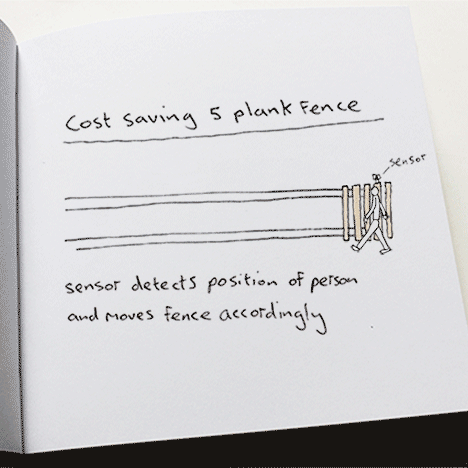 Cost saving 5 plank Fence
sensor
sensor detects position of person
and moves fence accordingly